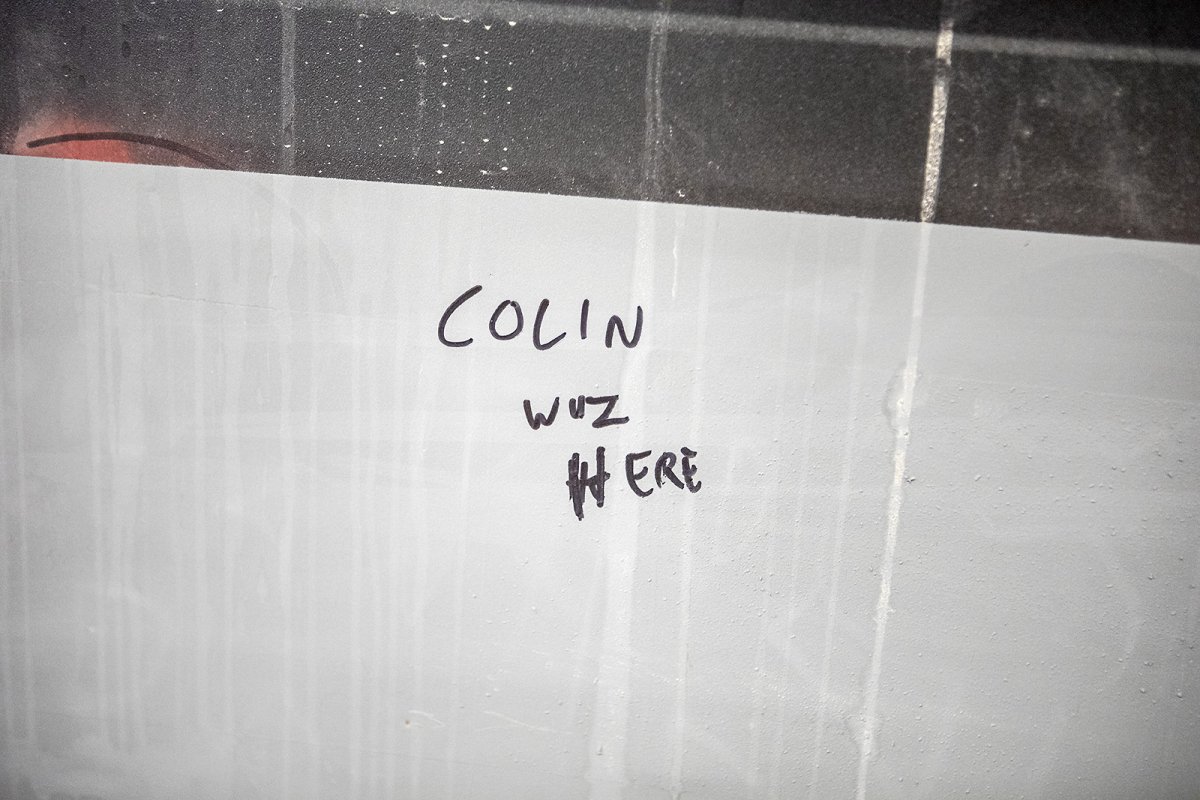 COLIN
WUZ
HERE